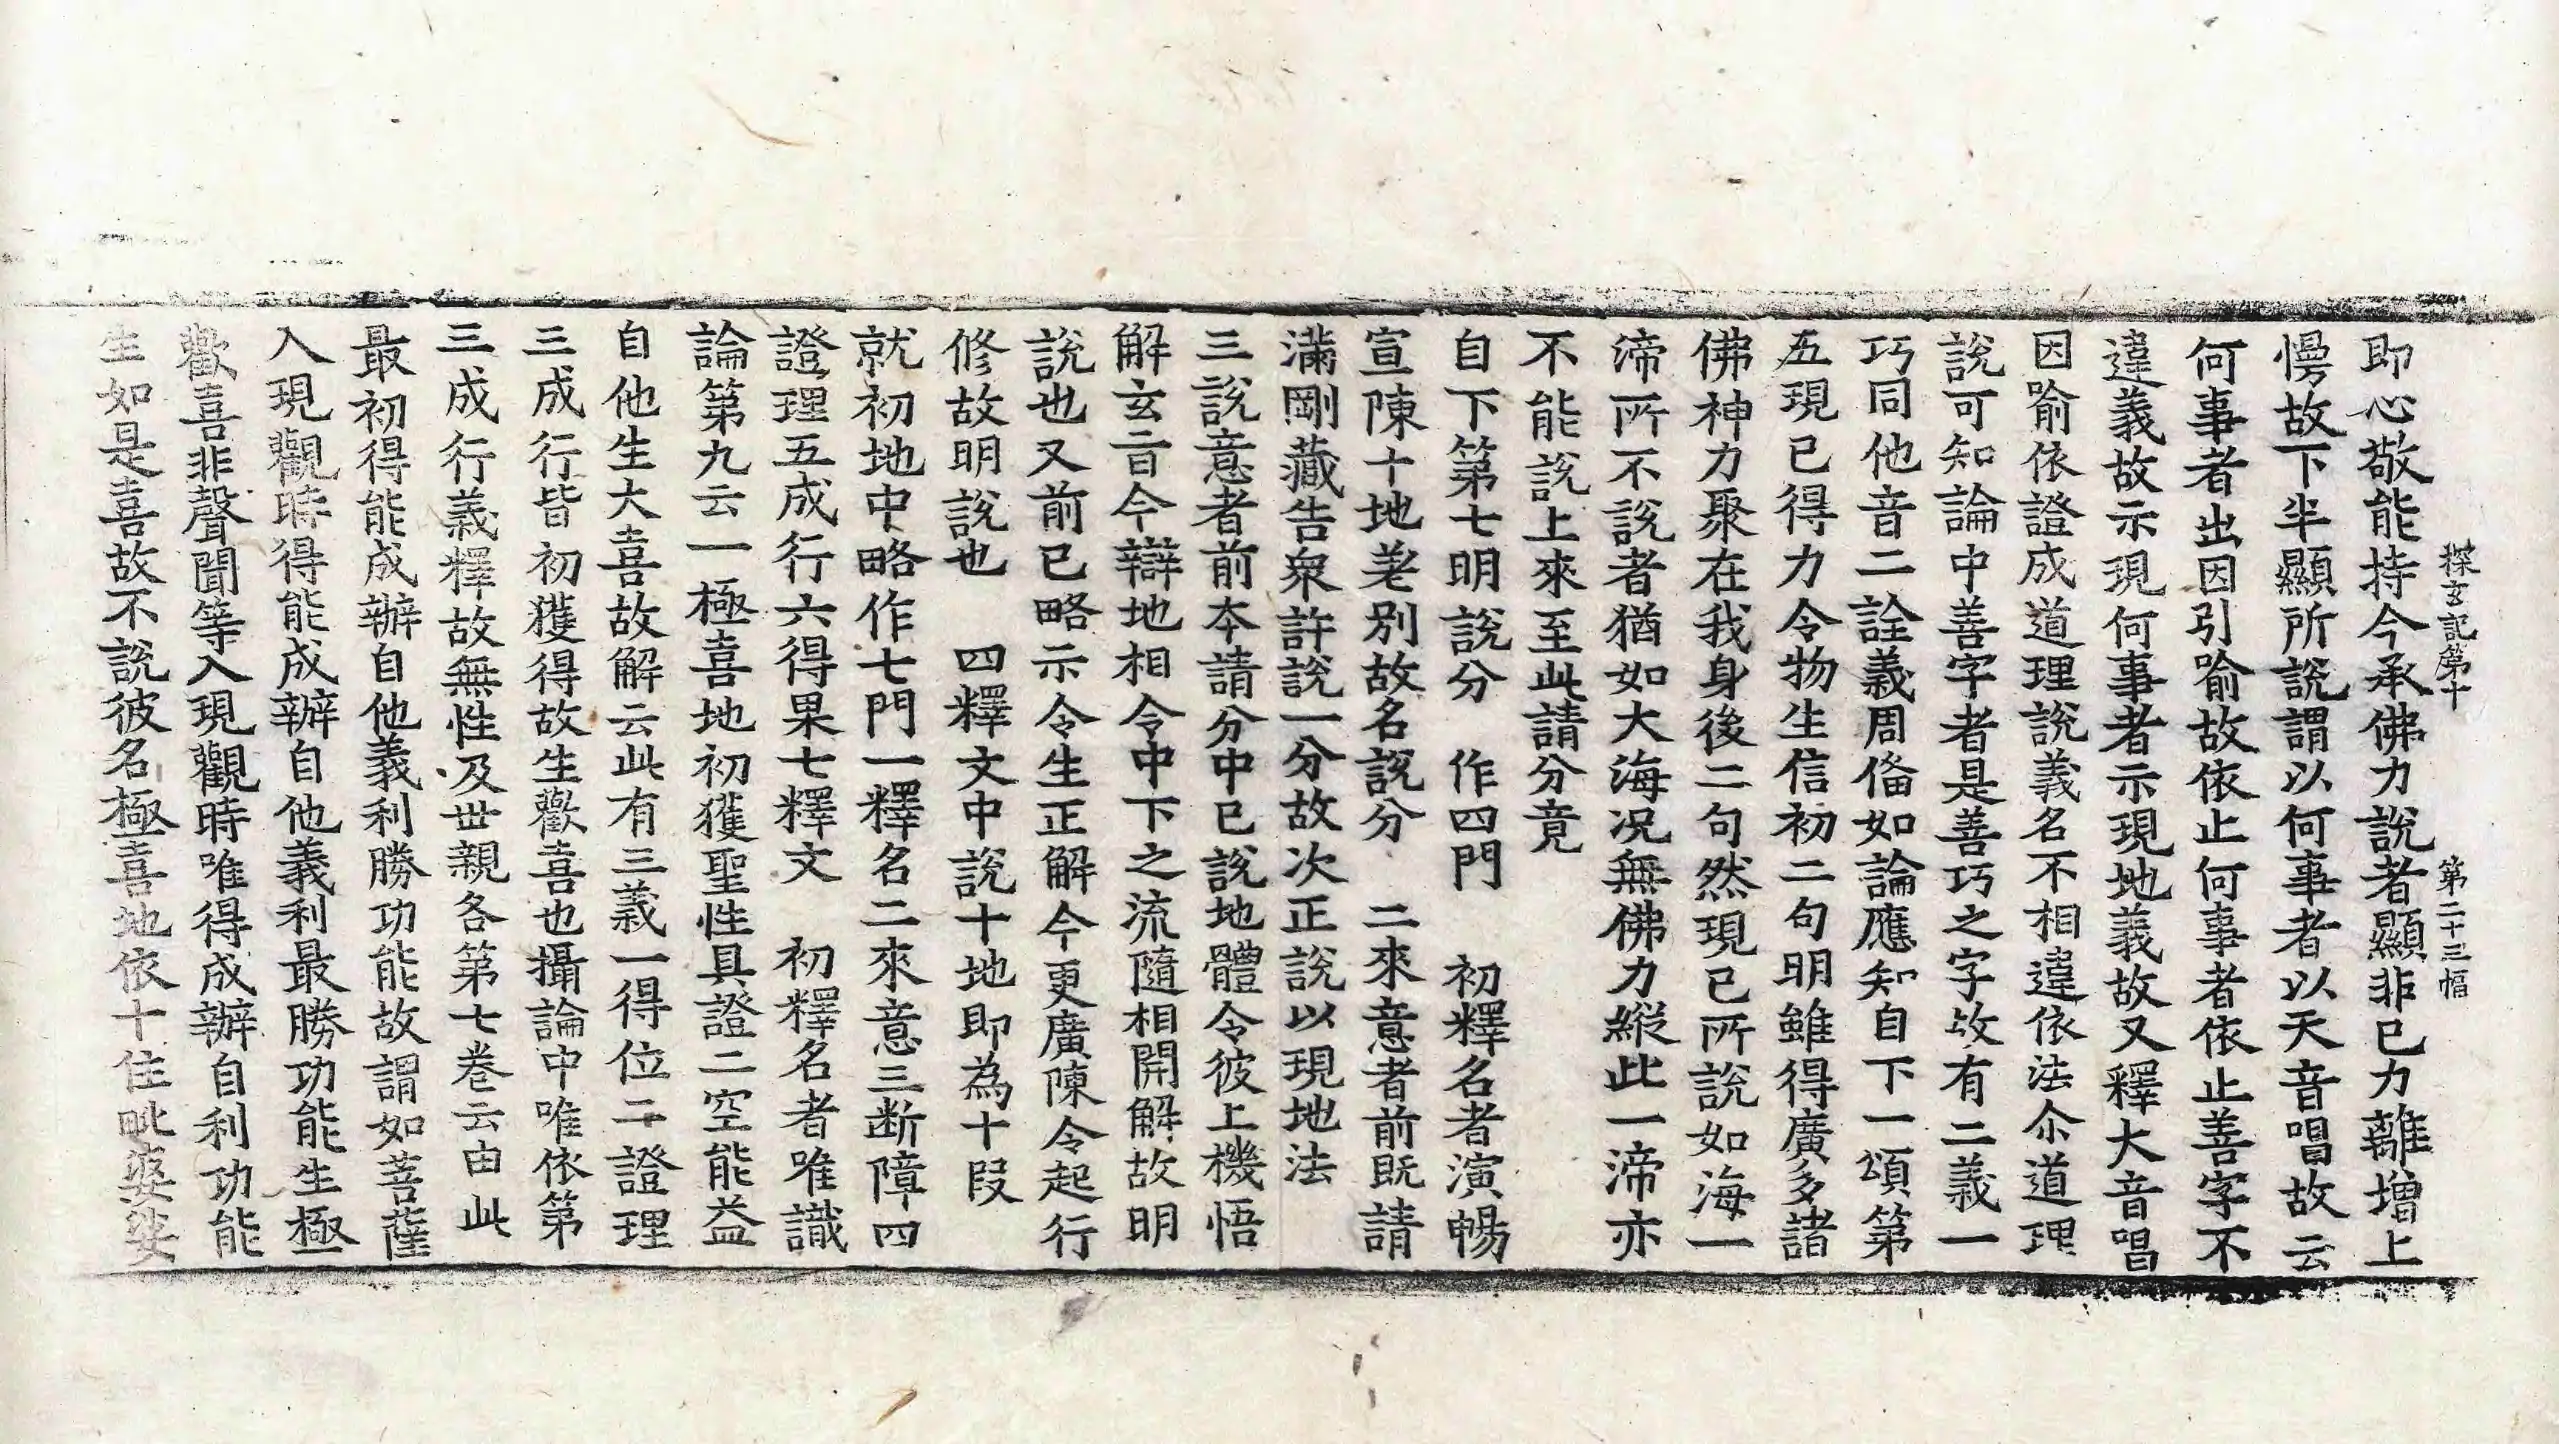 探玄記第十　第二十三幅
即心敬能持今承佛力說者顯非已力離增上
慢故下半顯所說謂以何事者以天音唱故云
何事者出因引喻故依止何事者依止善字不
違義故示現何事者示現地義故又釋大音唱
因喻依證成道理說義名不相違依法尒道理
說可知論中善字者是善巧之字故有二義一
巧同他音二詮義周俻如論應知自下一頌第
五現已得力令物生信初二句明雖得廣多諸
佛神力聚在我身後二句然現已所說如海一
渧所不說者猶如大海况無佛力縱此一渧亦
不能說上來至此請分竟
自下第七明說分　作四門　初釋名者演暢
宣陳十地差別故名說分　二來意者前既請
滿剛藏告衆許說一分故次正說以現地法
三說意者前本請分中已說地體令彼上機悟
解玄旨今辯地相令中下之流隨相開解故明
說也又前已略示令生正解今更廣陳令起行
修故明說也　四釋文中說十地即為十段
就初地中略作七門一釋名二來意三断障四
證理五成行六得果七釋文　初釋名者唯識
論第九云一極喜地初獲聖性具證二空能益
自他生大喜故解云此有三義一得位二證理
三成行皆初獲得故生歡喜也攝論中唯依第
三成行義釋故無性及世親各第七卷云由此
最初得能成辦自他義利勝功能故謂如菩薩
入現觀時得能成辦自他義利最勝功能生極
歡喜非聲聞等入現觀時唯得成辦自利功能
生如是喜故不說彼名極喜地依十住毗婆娑